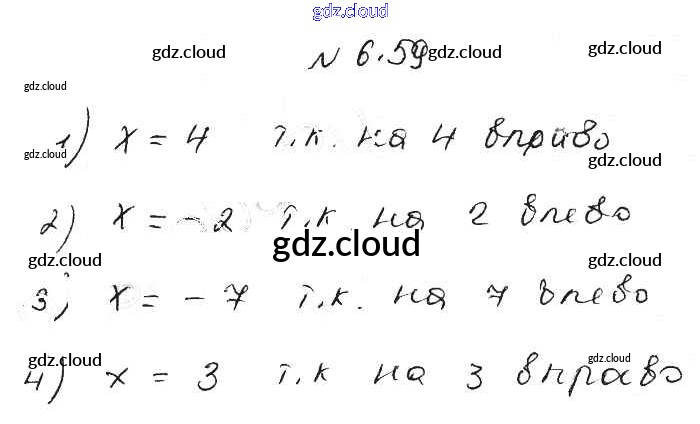 gdz.cloud
gdz.cloud N 6.59 gdz.cloud gdz.cloud
gdz.cloud
1) x = 4 т.к. на 4 вправо
gdz.cloud gdz.cloud
2) x = - 2 т.к на 2 влево
gdz.cloud
gdz.cloud gdz.cloud
3) x = - 7 т.к. на 7 влево
gdz.cloud gdz.cloud
4) x = 3 т.к на 3 вправо